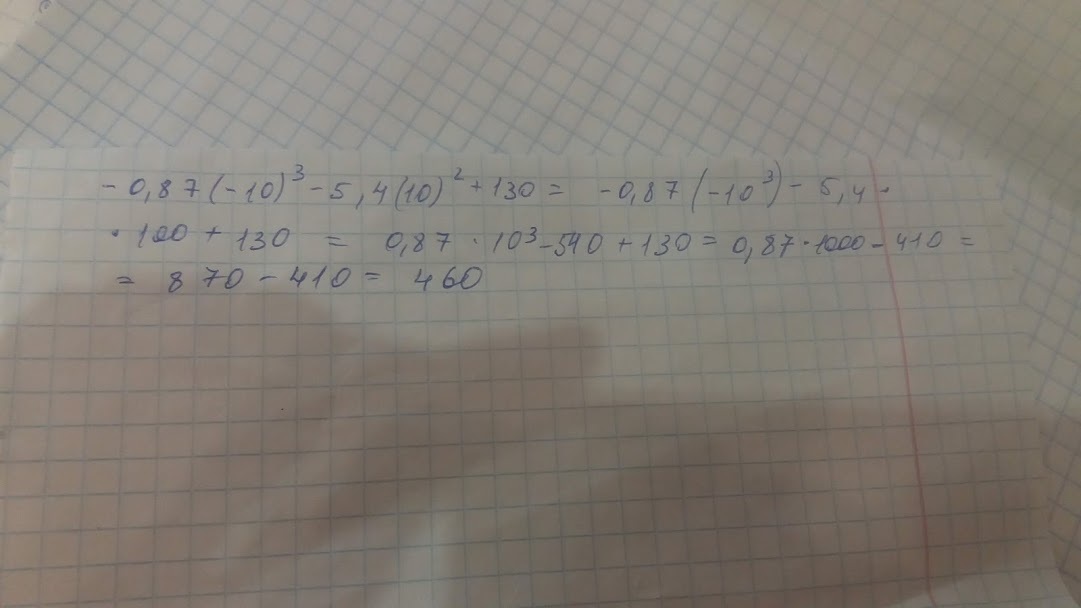 - 0,87(-10)³ - 5,4(10)² + 130 = -0,87(-10³) - 5,4 ·
· 100 + 130 = 0,87 · 10³ - 540 + 130 = 0,87 · 1000 - 410 =
= 870 - 410 = 460